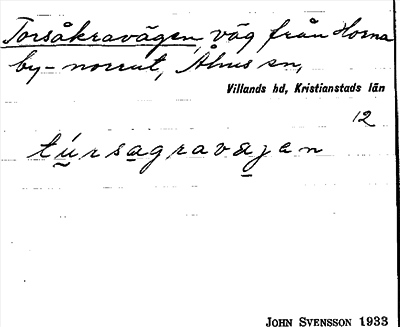 Torsåkravägen, väg från Horna
by - norrut, Åhus sn,
Villands hd, Kristianstads län
12
tursagravajen
JOHN SVENSSON 1933